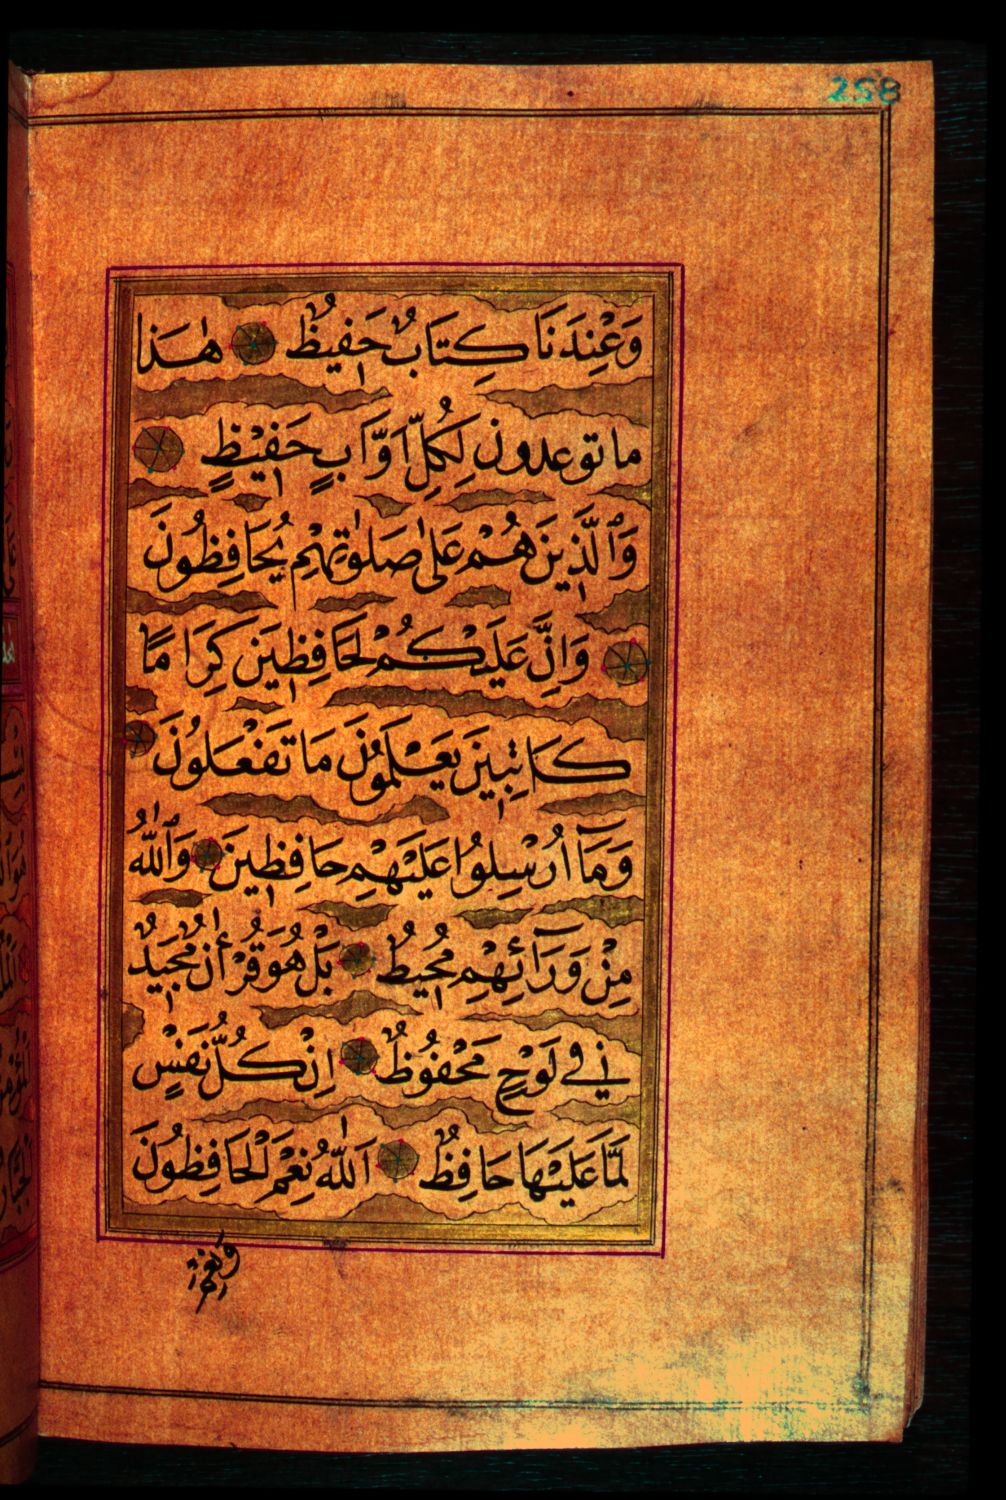 258
وَعِنْدَنَا كِتَابٌ حَفِيظٌ هٰذَا
ما توعدون لِكُلِّ اَوَّابٍ حَفِيْظٍ
وَٱلَّذِينَ هُمْ عَلىٰ صَلوٰتِهِمْ يُحَافِظُونَ
وَاِنَّ عَلَيْكُمْ لَحَافِظِينَ كِرَامًا
كَاتِبِينَ يَعْلَمُونَ مَا تَفْعَلُونَ
وَمَآ اُرْسِلُوا عَلَيْهِمْ حَافِظِينَ وَٱللّٰهُ
مِنْ وَرَآئِهِمْ مُحِيطٌ بَلْ هُوَ قُرْأٰنٌ مَجِيدٌ
فِي لَوْحٍ مَحْفُوظٌ اِنْ كُلُّ نَفْسٍ
لَمَّا عَلَيْهَا حَافِظٌ اَللّٰهُ نِعْمَ الْحَافِظُونَ